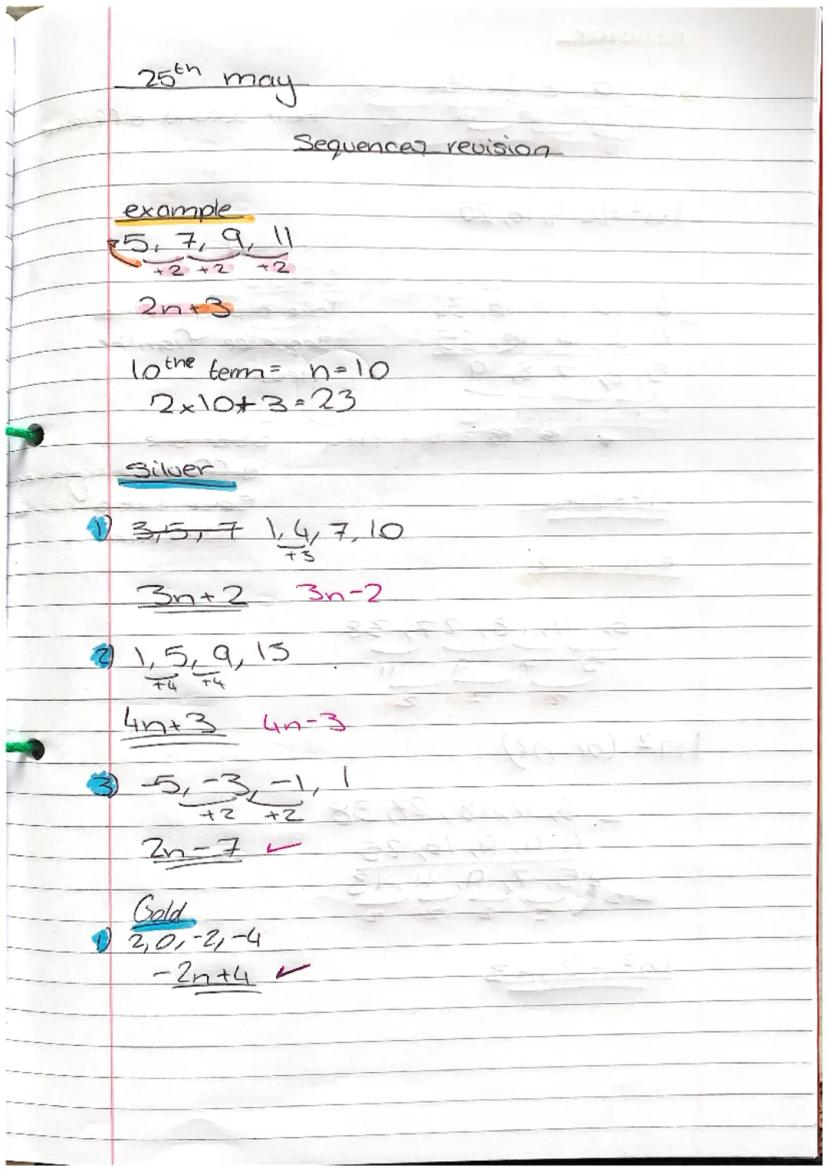 25th may
Sequences revision
example
5, 7, 9, 11
+2 +2 +2
2n+3
10the term= n=10
2x10+3=23
Silver
1) 3,5,7 1,4,7,10
+3
3n+2 3n-2
2) 1,5,9,13
+4 +4
4n+3 4n-3
3) -5,-3,-1,1
+2 +2
2n-7 ✓
Gold
1) 2,0,-2,-4
-2n+4 ✓